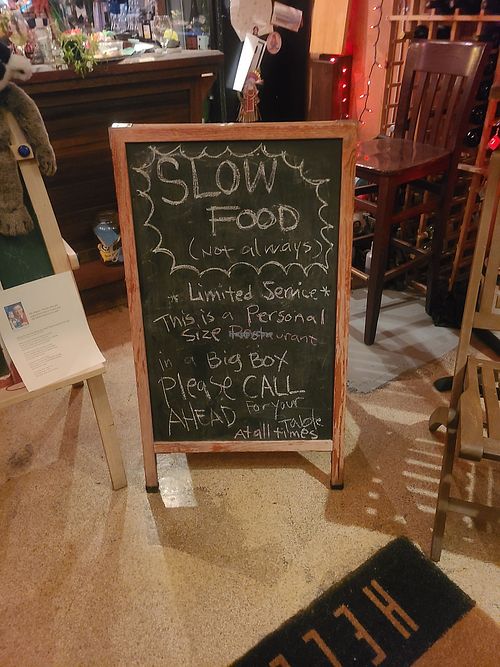 SLOW
FOOD
(Not always)
* Limited Service *
This is a Personal
Size Restaurant
in a Big Box
Please CALL
AHEAD For Your
Table
At all times
HELL